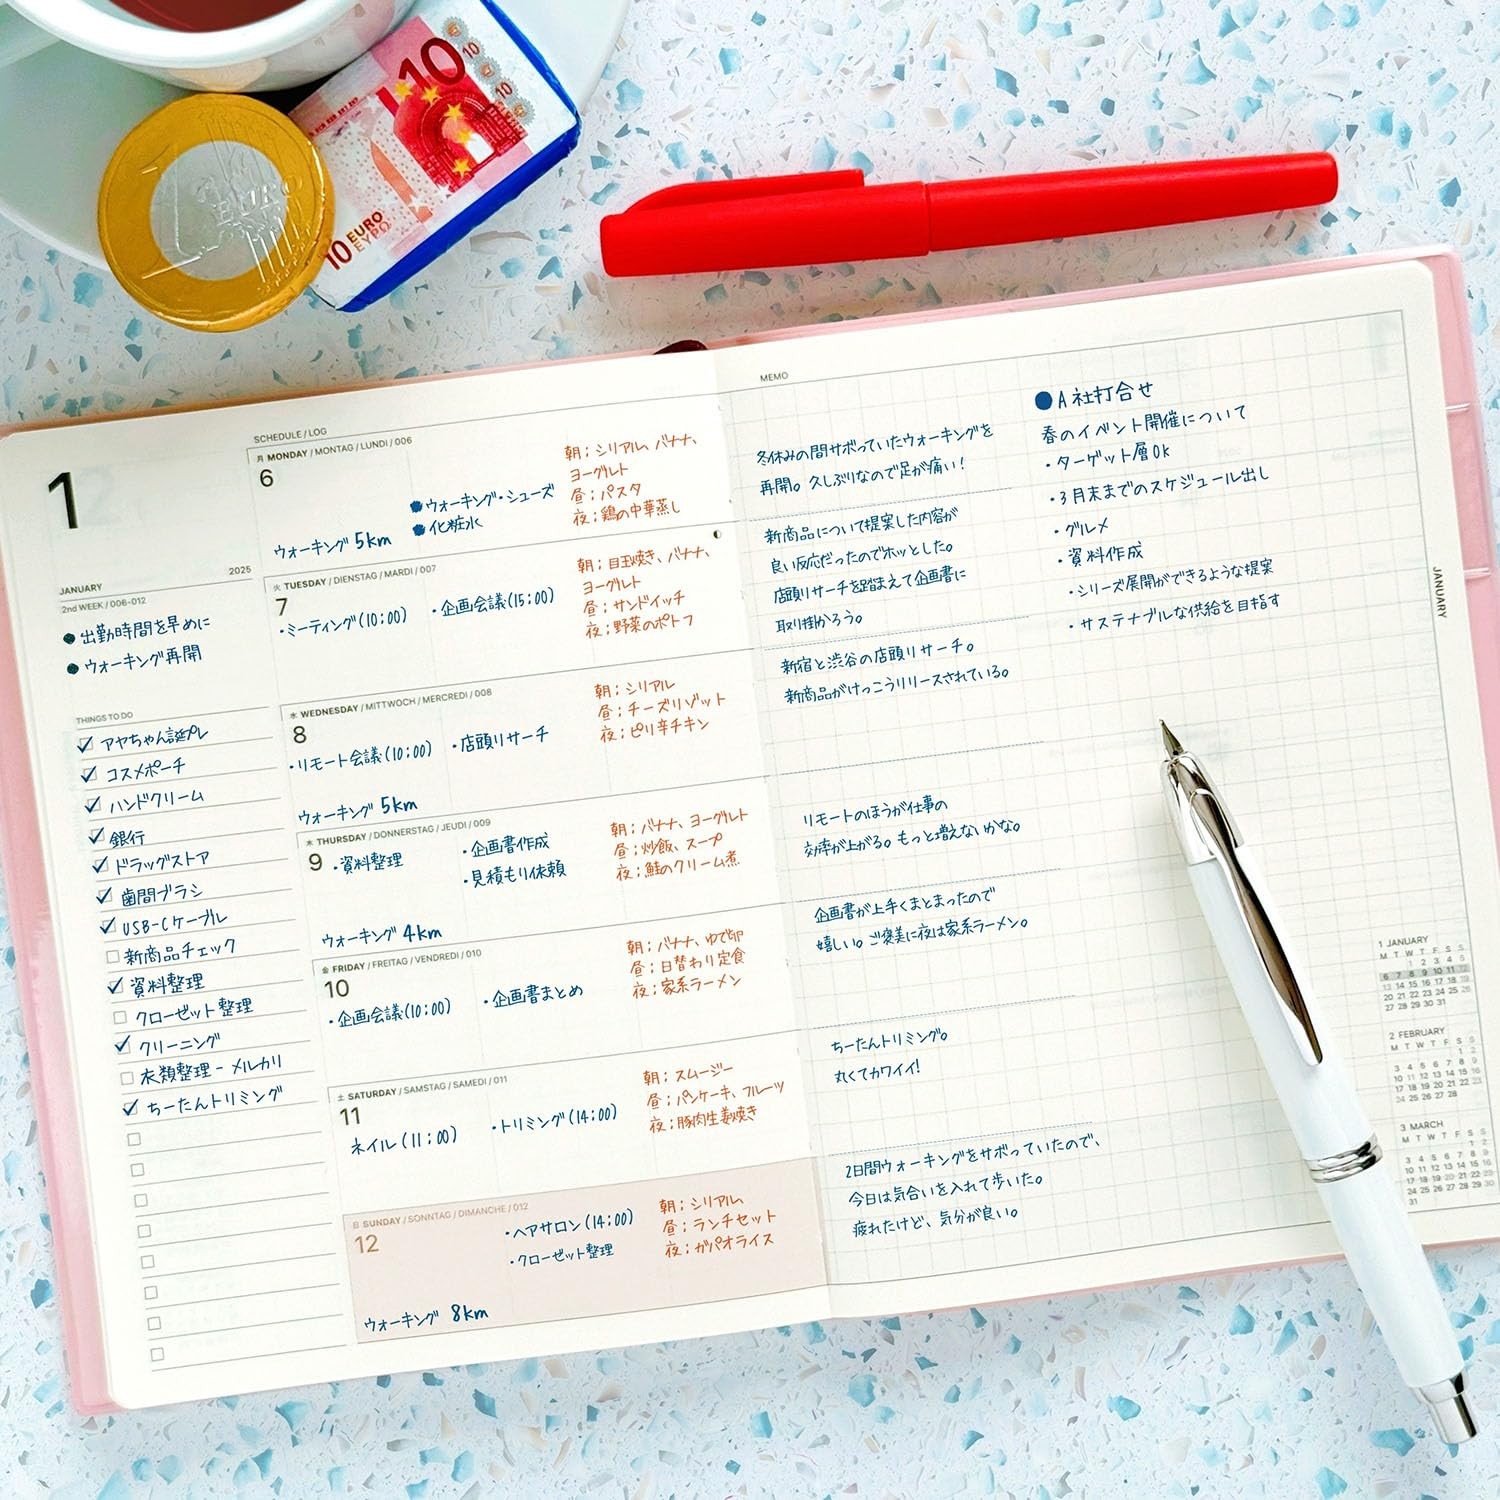 1 EURO
10
10
10
10 EURO
ΕΥΡΩ
12
JANUARY 2025
2nd WEEK / 006-012
●出勤時間を早めに
●ウォーキング再開
THINGS TO DO
アヤちゃん誕プレ
コスメポーチ
ハンドクリーム
銀行
ドラッグストア
歯間ブラシ
USB-Cケーブル
新商品チェック
資料整理
クローゼット整理
クリーニング
衣類整理-メルカリ
ちーたんトリミング
SCHEDULE / LOG
月 MONDAY / MONTAG / LUNDI / 006
6
●ウォーキング・シューズ
●化粧水
ウォーキング 5km
朝;シリアル、バナナ、
ヨーグルト
昼;パスタ
夜;鶏の中華蒸し
火 TUESDAY / DIENSTAG / MARDI / 007
7
・ミーティング(10:00)
・企画会議(15:00)
朝;目玉焼き、バナナ、
ヨーグルト
昼;サンドイッチ
夜;野菜のポトフ
水 WEDNESDAY / MITTWOCH / MERCREDI / 008
8
・リモート会議(10:00)
・店頭リサーチ
ウォーキング 5km
朝;シリアル
昼;チーズリゾット
夜;ピリ辛チキン
木 THURSDAY / DONNERSTAG / JEUDI / 009
9
・資料整理
・企画書作成
・見積もり依頼
ウォーキング 4km
朝;バナナ、ヨーグルト
昼;炒飯、スープ
夜;鮭のクリーム煮
金 FRIDAY / FREITAG / VENDREDI / 010
10
・企画会議(10:00)
・企画書まとめ
朝;バナナ、ゆで卵
昼;日替わり定食
夜;家系ラーメン
土 SATURDAY / SAMSTAG / SAMEDI / 011
11
ネイル(11:00)
・トリミング(14:00)
朝;スムージー
昼;パンケーキ、フルーツ
夜;豚肉生姜焼き
日 SUNDAY / SONNTAG / DIMANCHE / 012
12
・ヘアサロン(14:00)
・クローゼット整理
ウォーキング 8km
朝;シリアル
昼;ランチセット
夜;ガパオライス
MEMO
冬休みの間サボっていたウォーキングを
再開。久しぶりなので足が痛い!
新商品について提案した内容が
良い反応だったのでホッとした。
店頭リサーチを踏まえて企画書に
取り掛かろう。
新宿と渋谷の店頭リサーチ。
新商品がけっこうリリースされている。
リモートのほうが仕事の
効率が上がる。もっと増えないかな。
企画書が上手くまとまったので
嬉しい。ご褒美に夜は家系ラーメン。
ちーたんトリミング。
丸くてカワイイ!
2日間ウォーキングをサボっていたので、
今日は気合いを入れて歩いた。
疲れたけど、気分が良い。
●A社打合せ
春のイベント開催について
・ターゲット層Ok
・3月末までのスケジュール出し
・グルメ
・資料作成
・シリーズ展開ができるような提案
・サステナブルな供給を目指す
JANUARY
1 JANUARY
M T W T F S S
1 2 3 4 5
6 7 8 9 10 11 12
13 14 15 16 17 18 19
20 21 22 23 24 25 26
27 28 29 30 31
2 FEBRUARY
M T W T F S S
1 2
3 4 5 6 7 8 9
10 11 12 13 14 15 16
17 18 19 20 21 22 23
24 25 26 27 28
3 MARCH
M T W T F S S
1 2
3 4 5 6 7 8 9
10 11 12 13 14 15 16
17 18 19 20 21 22 23
24 25 26 27 28 29 30
31